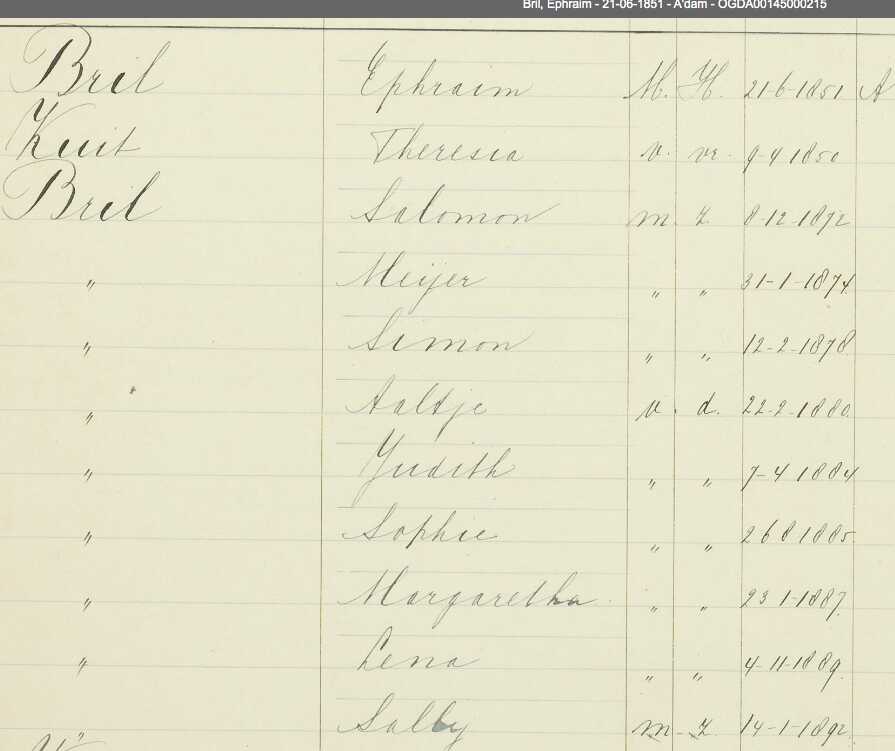 Bril, Ephraim - 21-06-1851 - A'dam - OGDA00145000215
Bril Ephraim M. H. 21-6-1851 A
Kuit Theresia v. vr. 9-4 1850
Bril Salomon m. z. 8-12-1872
" Meijer " " 31-1-1874
" Simon " " 12-2-1878
" Aaltje v. d. 22-2-1880.
" Judith " " 7-4 1884
" Sophie " " 26 8 1885
" Margaretha " " 23 1-1887.
" Lena " " 4-11-1889.
" Sally m. z. 14-1-1892.